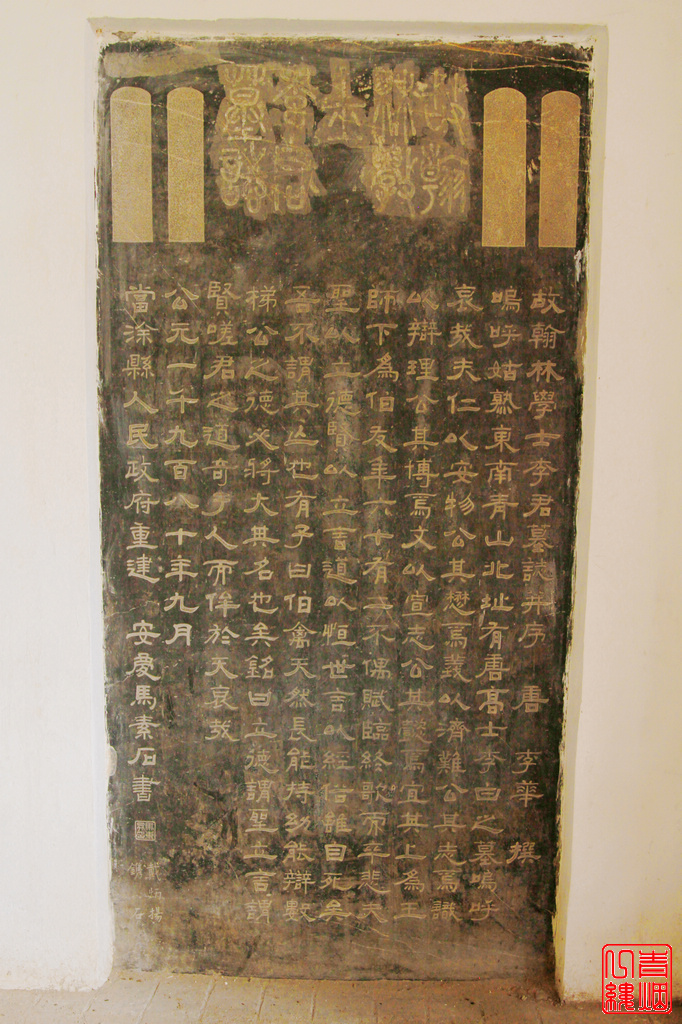 故翰
林學
士
李君
墓誌
故翰林學士李君墓誌并序 唐 李華 撰
嗚呼姑熟東南青山北址有唐高士李白之墓嗚呼
哀哉夫仁以安物公其懋焉義以濟難公其志焉識
以辯理公其博焉文以宣志公其懿焉宜其上為王
師下為伯友年六十有二不偶賦臨終歌而卒悲夫
聖以立德賢以立言道以恒世言以經俗雖曰死矣
吾不謂其亡也有子曰伯禽天然長能持幼能辯數
梯公之德必將大其名也矣銘曰立德謂聖立言謂
賢嗟君之道奇于人而侔於天哀哉
公元一千九百八十年九月
當涂縣人民政府重建 安慶馬素石書
戴炳揚
鐫石